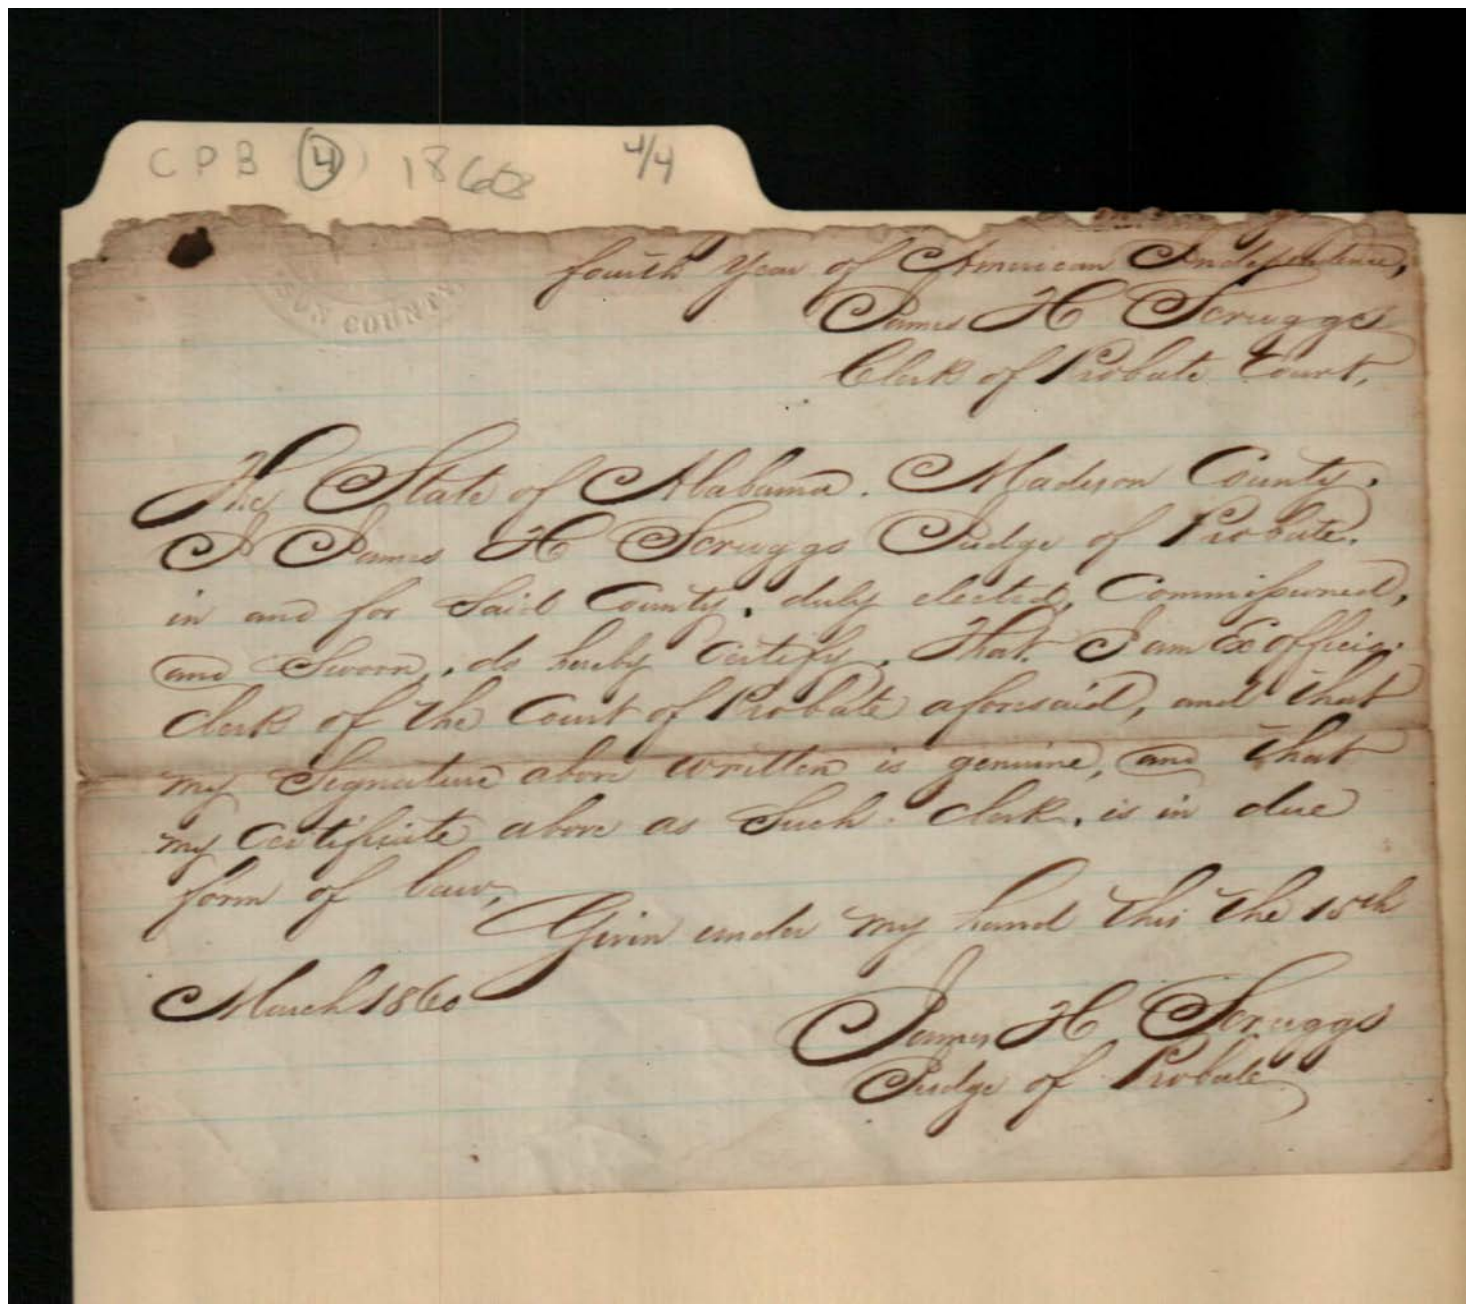 CPB 4 1860 4/4
fourth Year of American Independence,
SON COUNTY
James H Scruggs
Clerk of Probate Court,
The State of Alabama. Madison County.
I James H Scruggs Judge of Probate.
in and for Said County, duly elected, Commissioned,
and Sworn, do hereby Certify, That I am Ex officio
clerk of the Court of Probate aforesaid, and that
my Signature above written is genuine, and that
my Certificate above as Such Clerk, is in due
form of law,
Given under my hand this the 15th
March 1860
James H Scruggs
Judge of Probate